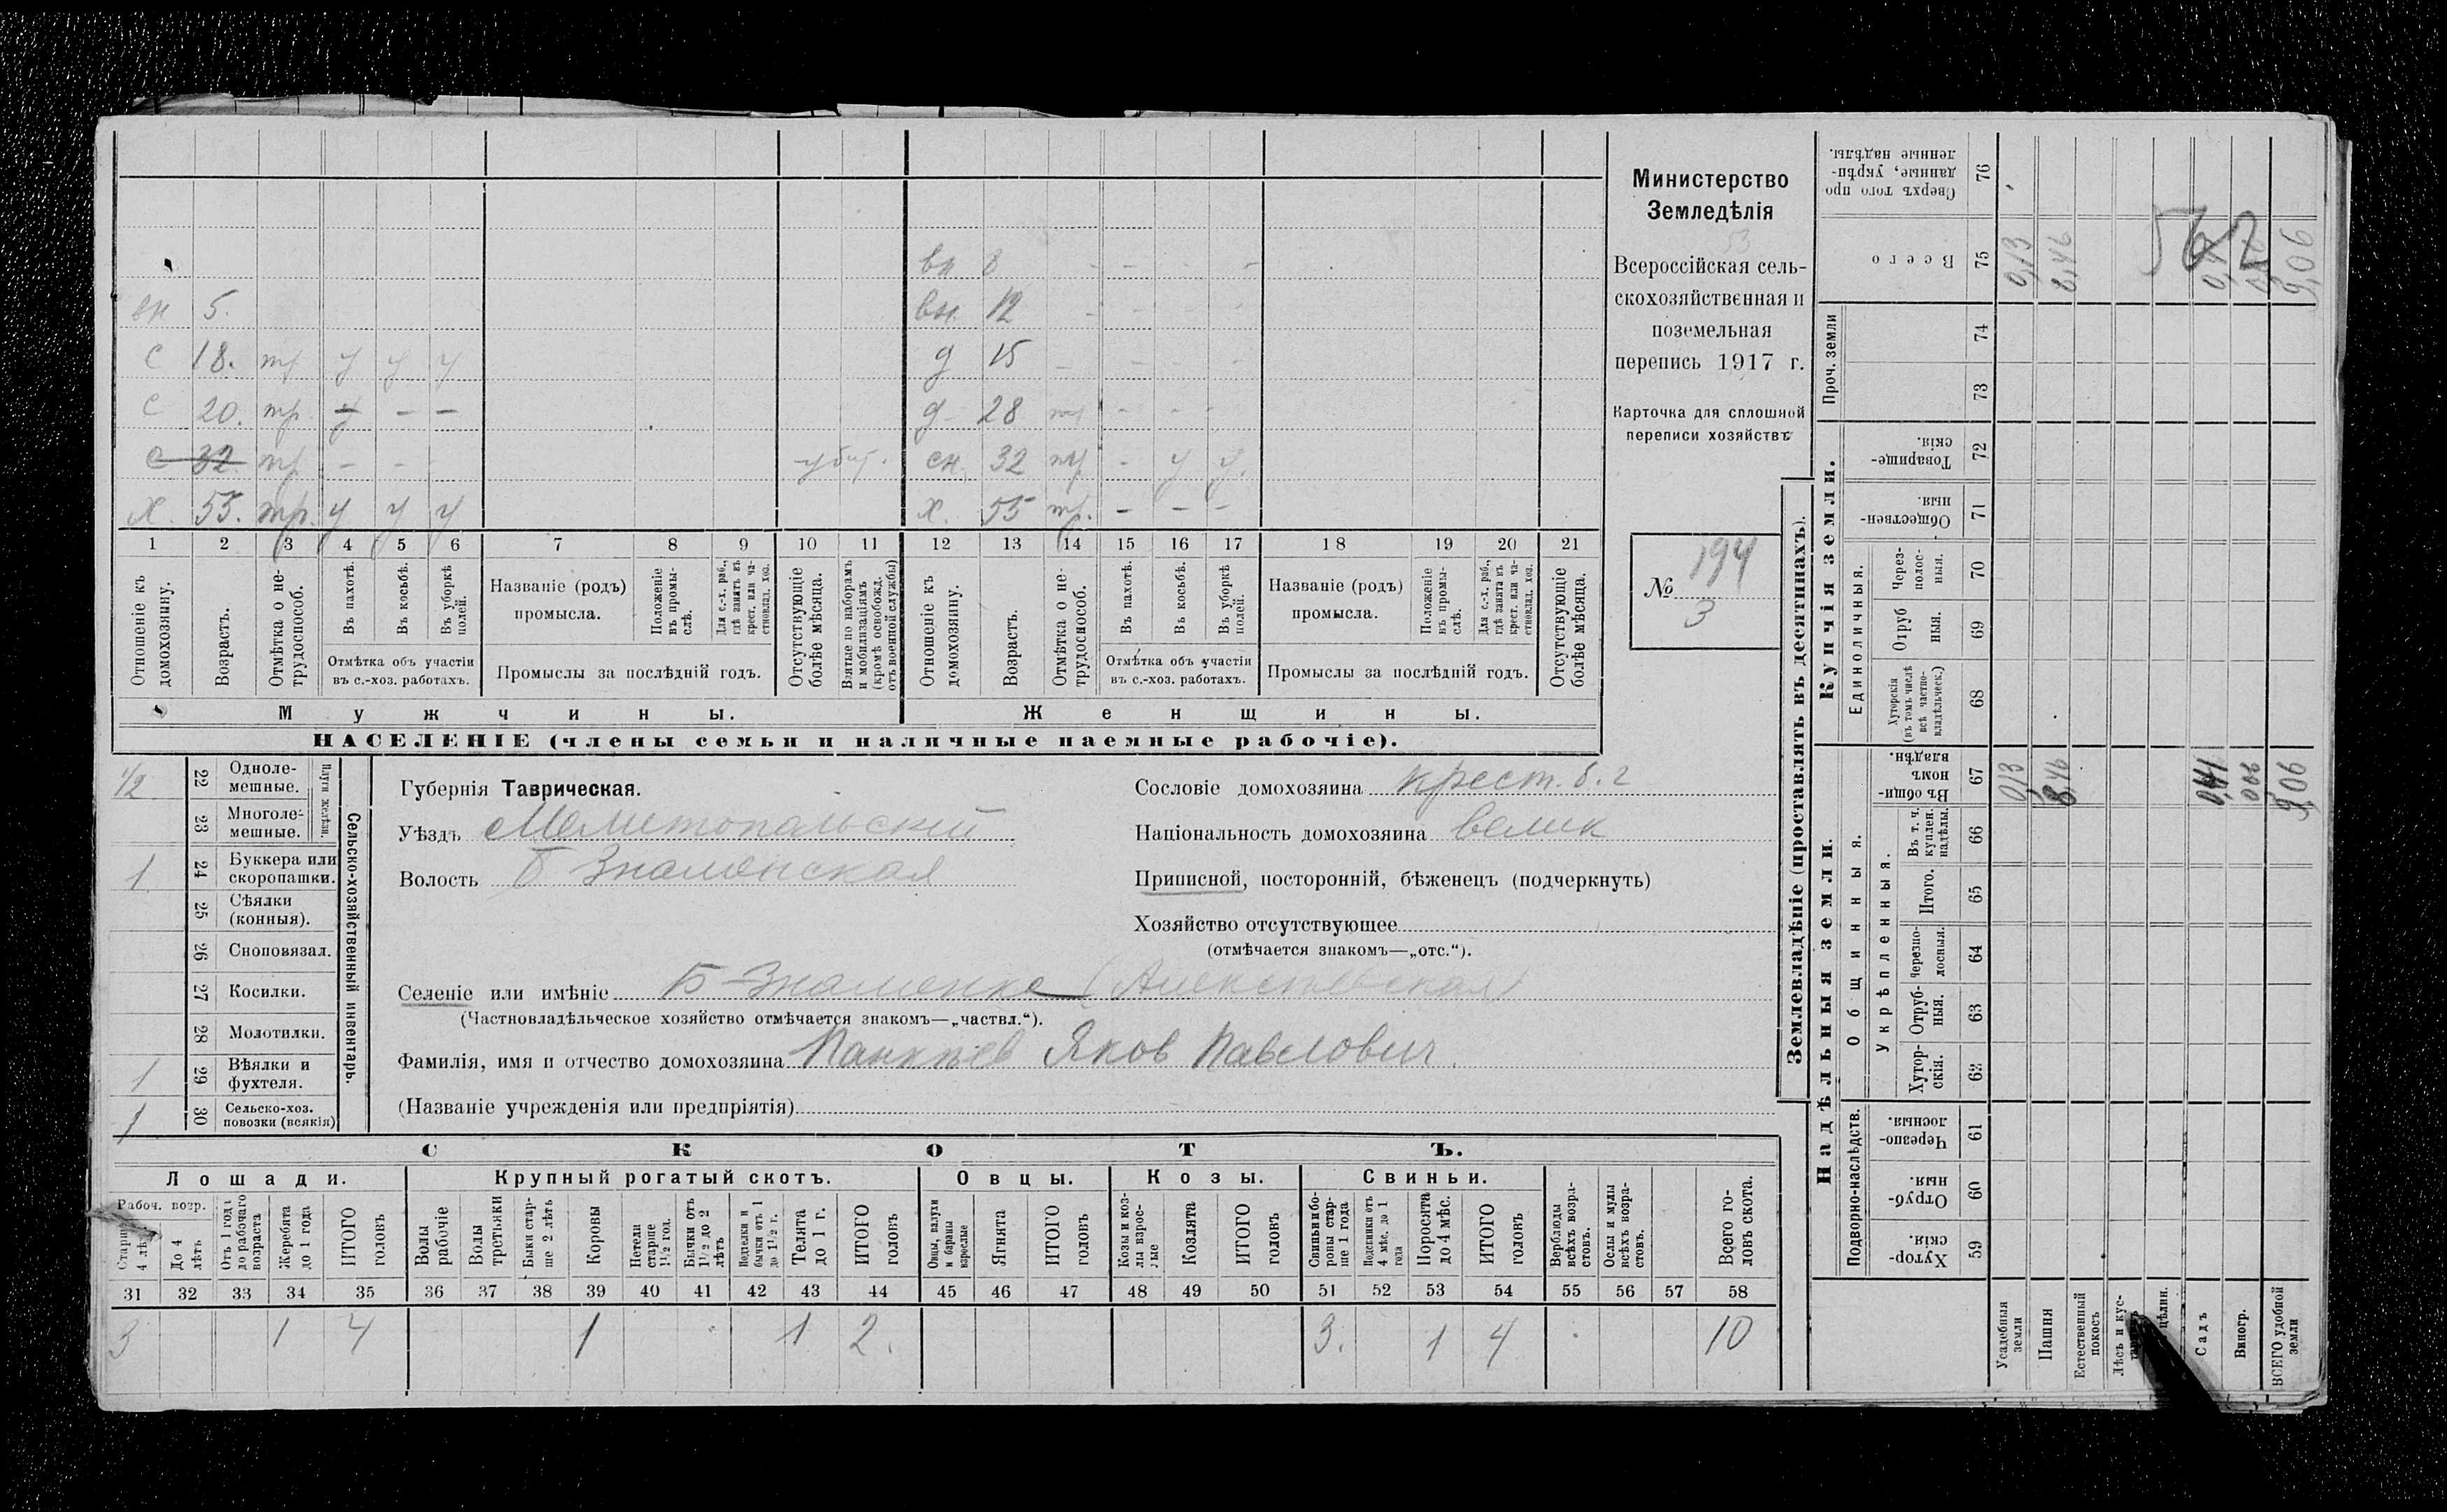 Министерство
Земледѣлія
Всероссійская сель-
скохозяйственная и
поземельная
перепись 1917 г.
Карточка для сплошной
переписи хозяйствъ
№ 194
3
вн 8 - - - -
вн 5. вн. 12 - - - -
с 18. тр у у у д 15 - - - -
с 20. тр. у - - д 28 тр - - -
с 32 тр - - убит. сн. 32 тр - у у.
х. 55. тр. у у у х. 55 тр. - - -
1 2 3 4 5 6 7 8 9 10 11 12 13 14 15 16 17 18 19 20 21
Отношеніе къ домохозяину.
Возрастъ.
Отмѣтка о не-трудоспособ.
Въ пахотѣ.
Въ косьбѣ.
Въ уборкѣ полей.
Отмѣтка объ участіи
въ с.-хоз. работахъ.
Названіе (родъ)
промысла.
Положеніе въ промы-слѣ.
Для с.-х. раб., гдѣ занятъ въ крест. или ча-стновлад. хоз.
Промыслы за послѣдній годъ.
Отсутствующіе болѣе мѣсяца.
Взятые по наборамъ и мобилизаціямъ (кромѣ освобожд. отъ военной службы)
Отношеніе къ домохозяину.
Возрастъ.
Отмѣтка о не-трудоспособ.
Въ пахотѣ.
Въ косьбѣ.
Въ уборкѣ полей.
Отмѣтка объ участіи
въ с.-хоз. работахъ.
Названіе (родъ)
промысла.
Положеніе въ промы-слѣ.
Для с.-х. раб., гдѣ занята въ крест. или ча-стновлад. хоз.
Промыслы за послѣдній годъ.
Отсутствующіе болѣе мѣсяца.
Мужчины. Женщины.
НАСЕЛЕНІЕ (члены семьи и наличные наемные рабочіе).
Сельско-хозяйственный инвентарь.
Плуги желѣзн.
1/2 22 Одноле-мешные.
23 Многоле-мешные.
1 24 Буккера или скоропашки.
25 Сѣялки (конныя).
26 Сноповязал.
27 Косилки.
28 Молотилки.
1 29 Вѣялки и фухтеля.
1 30 Сельско-хоз. повозки (всякія)
Губернія Таврическая.
Уѣздъ Мелитопольский
Волость Б Знаменская
Селеніе или имѣніе Б-Знаменка (Алексеевская)
(Частновладѣльческое хозяйство отмѣчается знакомъ—„частвл.“).
Фамилія, имя и отчество домохозяина Панкеев Яков Павлович.
(Названіе учрежденія или предпріятія)
Сословіе домохозяина крест. б. г
Національность домохозяина велик
Приписной, посторонній, бѣженецъ (подчеркнуть)
Хозяйство отсутствующее
(отмѣчается знакомъ—„отс.“).
СКОТЪ.
Лошади. Крупный рогатый скотъ. Овцы. Козы. Свиньи.
Рабоч. возр.
Старше 4 лѣтъ
До 4 лѣтъ
Отъ 1 года до рабочаго возраста
Жеребята до 1 года
ИТОГО головъ
Волы рабочіе
Волы третьяки
Быки стар-ше 2 лѣтъ
Коровы
Нетели старше 1 1/2 год.
Бычки отъ 1 1/2 до 2 лѣтъ
Подтелки и бычки отъ 1 до 1 1/2 г.
Телята до 1 г.
ИТОГО головъ
Овцы, валухи и бараны взрослые
Ягнята
ИТОГО головъ
Козы и коз-лы взрос-лые
Козлята
ИТОГО головъ
Свиньи и бо-ровы стар-ше 1 года
Подсвинки отъ 4 мѣс. до 1 года
Поросята до 4 мѣс.
ИТОГО головъ
Верблюды всѣхъ возра-стовъ.
Ослы и мулы всѣхъ возра-стовъ.
Всего го-ловъ скота.
31 32 33 34 35 36 37 38 39 40 41 42 43 44 45 46 47 48 49 50 51 52 53 54 55 56 57 58
3 1 4 1 1 2. 3. 1 4 10
Землевладѣніе (проставлять въ десятинахъ).
Надѣльныя земли. Купчія земли. Проч. земли
Подворно-наслѣдств.
Общинныя.
Укрѣпленныя.
Единоличныя.
Хутор-скія. 59
Отруб-ныя. 60
Черезпо-лосныя. 61
Хутор-скія. 62
Отруб-ныя. 63
Черезпо-лосныя. 64
Итого. 65
Въ т. ч. куплен. надѣлы. 66
Въ общин-номъ владѣн. 67 0,13 8,46 0,41 0,06 9,06
Хуторскія (въ томъ числѣ всѣ частно-владѣльческ.) 68
Отруб ныя. 69
Через-полос-ныя. 70
Обществен-ныя. 71
Товарище-скія. 72
73
74
Всего 75 0,13 8,46 9,06
Сверхъ того про данные, укрѣп-ленные надѣлы. 76
562
Усадебныя земли
Пашня
Естественный покосъ
Лѣсъ и кус-
Садъ
Виногр.
ВСЕГО удобной земли